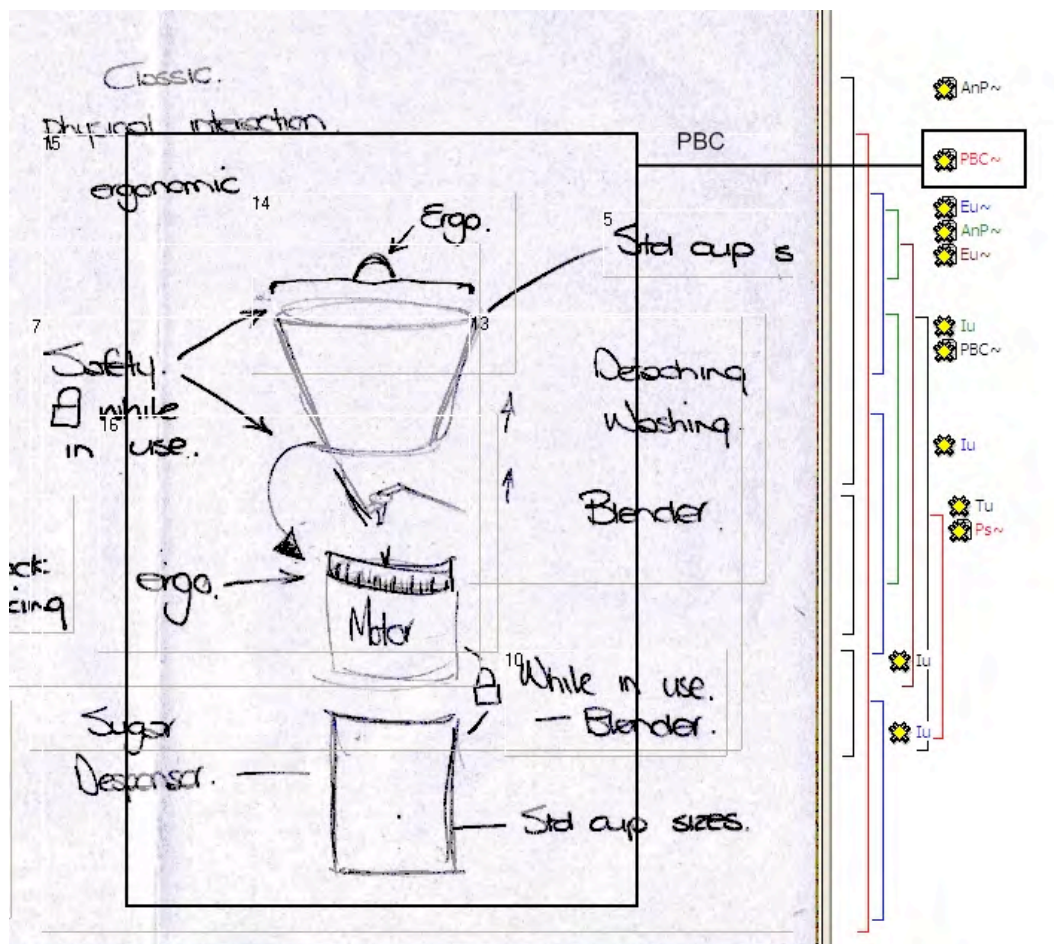 Classic.
physical interaction.
15
PBC
ergonomic
14
Ergo.
5
Std cup s
7
13
Safety.
while
16
in use.
Detaching
Washing
Blender.
ck:
cing
ergo.
Motor
10
While in use.
— Blender.
Sugar
Despensor.
Std cup sizes.
AnP~
PBC~
Eu~
AnP~
Eu~
Iu
PBC~
Iu
Tu
Ps~
Iu
Iu